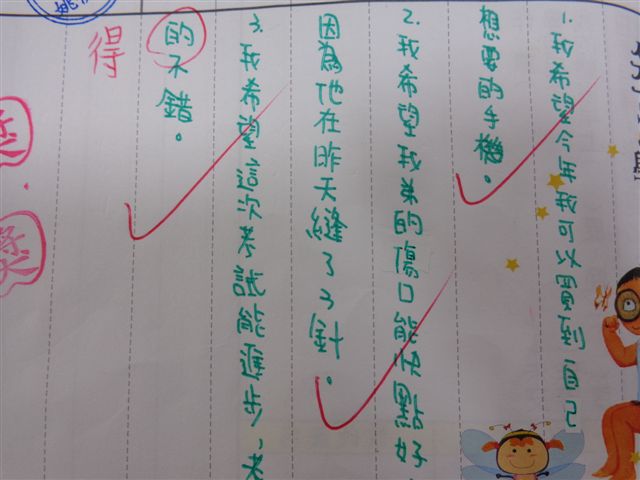 1.我希望今年我可以買到自己
想要的手機。
2.我希望我弟的傷口能快點好,
因為他在昨天縫了3針。
3.我希望這次考試能進步、考
的不錯。
得